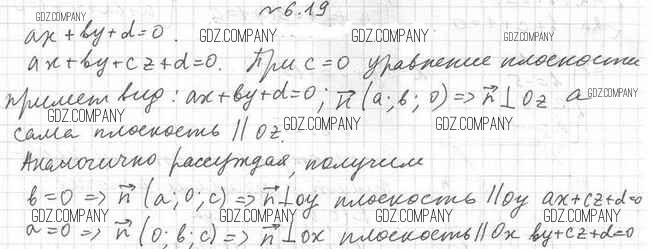 №6.19
ax+by+d=0. GDZ.COMPANY GDZ.COMPANY GDZ.COMPANY GDZ.COMPANY
ax+by+cz+d=0. При c=0 уравнение плоскости
примет вид: ax+by+d=0; n⃗(a; b; 0) => n⃗ ⊥ Oz а GDZ.COMPANY
сама плоскость || Oz. GDZ.COMPANY GDZ.COMPANY
Аналогично рассуждая, получим
b=0 => n⃗ (a; 0; c) => n⃗⊥oy плоскость ||oy ax+cz+d=0
GDZ.COMPANY GDZ.COMPANY GDZ.COMPANY GDZ.COMPANY
a=0 => n⃗ (0; b; c) => n⃗⊥ox плоскость||Ox by+cz+d=0